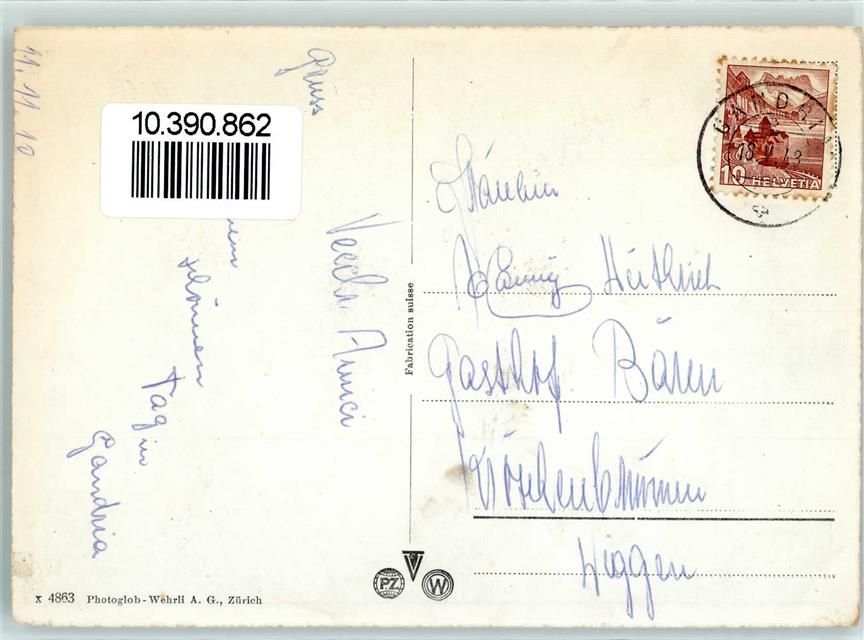 11.11.10
10.390.862
Gruss
einen
schönen
Tag in
Gandria
Vecchi Amici
Fabrication suisse
GANDRIA
18.V.43
10 HELVETIA
Fräulein
Fanny
Gasthof Bären
Wiggen
PZ
W
x 4863 Photoglob-Wehrli A. G., Zürich